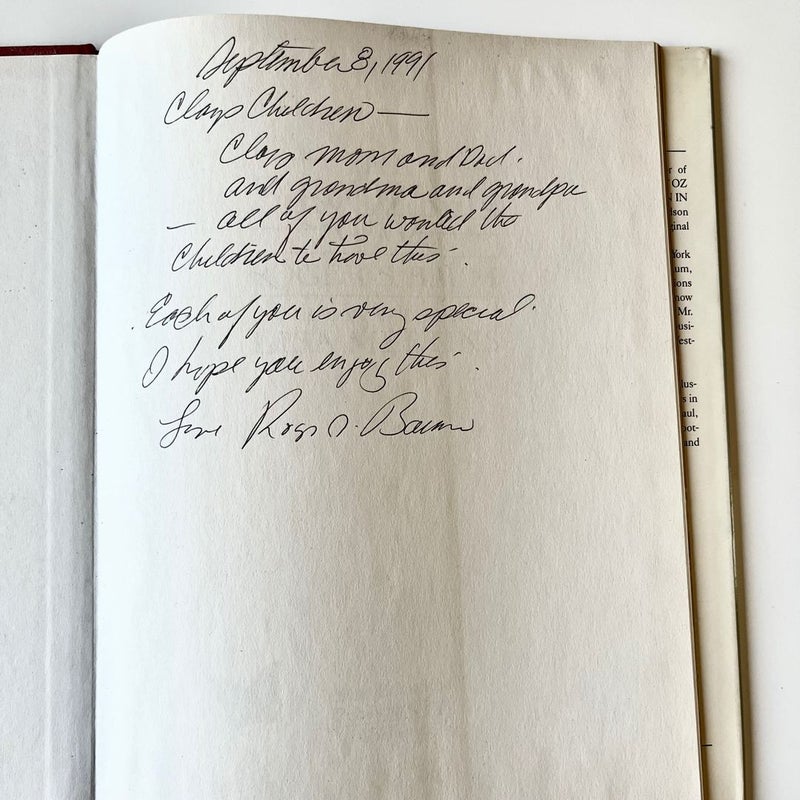 September 3, 1991
Clays Children —
Clays mom and Dad.
and grandma and grandpa
— all of you wanted the
Children to have this.
Each of you is very special.
I hope you enjoy this.
Love Roger S. Baum
r of
OZ
N IN
son
ginal
York
um,
ions
now
Mr.
usi-
est-
lus-
s in
aul,
oot-
and